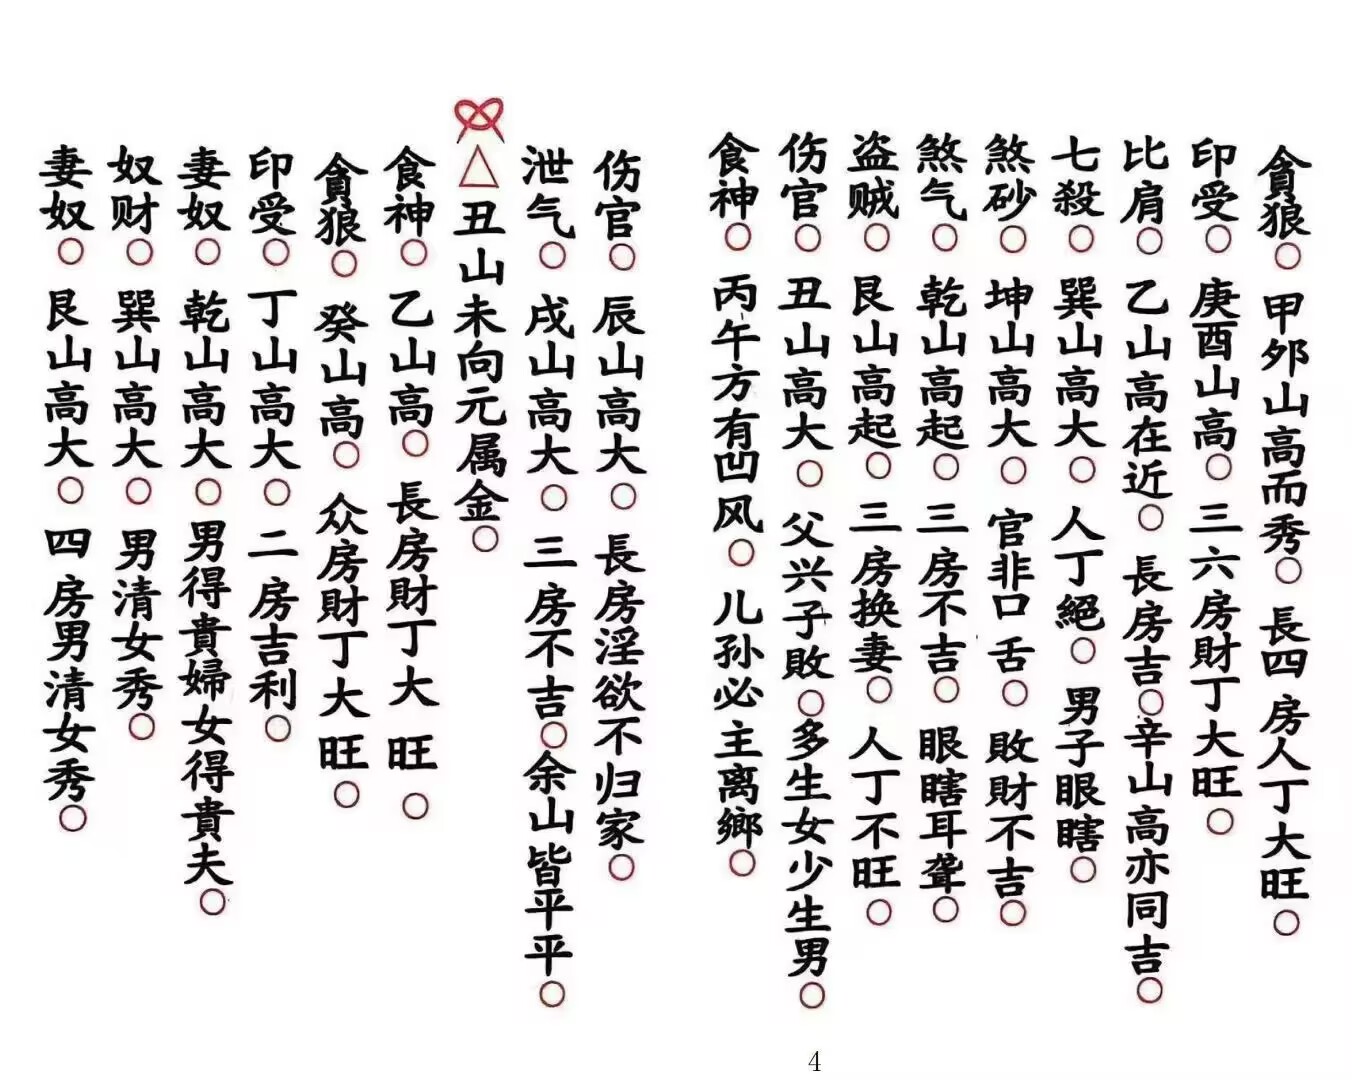 貪狼○甲夘山高而秀○長四房人丁大旺○
印受○庚酉山高○三六房財丁大旺○
比肩○乙山高在近○長房吉○辛山高亦同吉○
七殺○巽山高大○人丁絕○男子眼瞎○
煞砂○坤山高大○官非口舌○敗財不吉○
煞气○乾山高起○三房不吉○眼瞎耳聾○
盗贼○艮山高起○三房换妻○人丁不旺○
伤官○丑山高大○父兴子敗○多生女少生男○
食神○丙午方有凹风○儿孙必主离鄉○
伤官○辰山高大○長房淫欲不归家○
泄气○戌山高大○三房不吉○余山皆平平○
△丑山未向元属金○
食神○乙山高○長房財丁大旺○
貪狼○癸山高○众房財丁大旺○
印受○丁山高大○二房吉利○
妻奴○乾山高大○男得貴婦女得貴夫○
奴财○巽山高大○男清女秀○
妻奴○艮山高大○四房男清女秀○
4